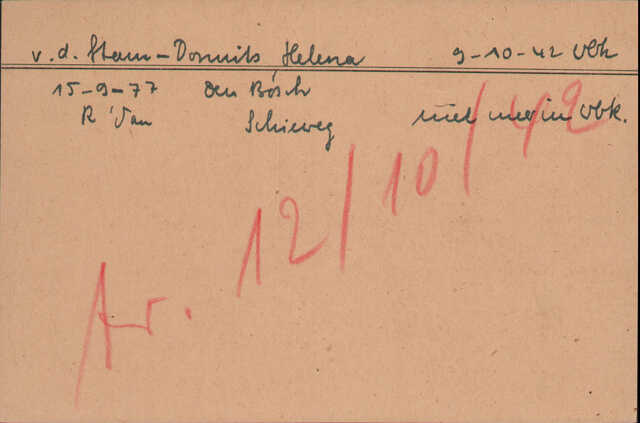 v. d. Stam-Dormits Helena 9-10-42 Vbk
15-9-77 Den Bosch
R'dam Schieweg niet meer in Vbk.
Ar. 12/10/42